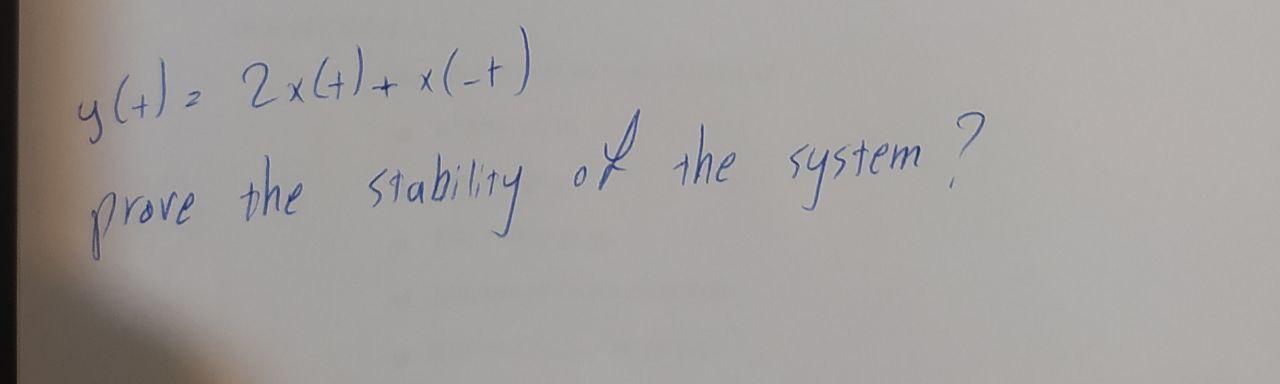 y(t) = 2x(t) + x(-t)
prove the stability of the system?